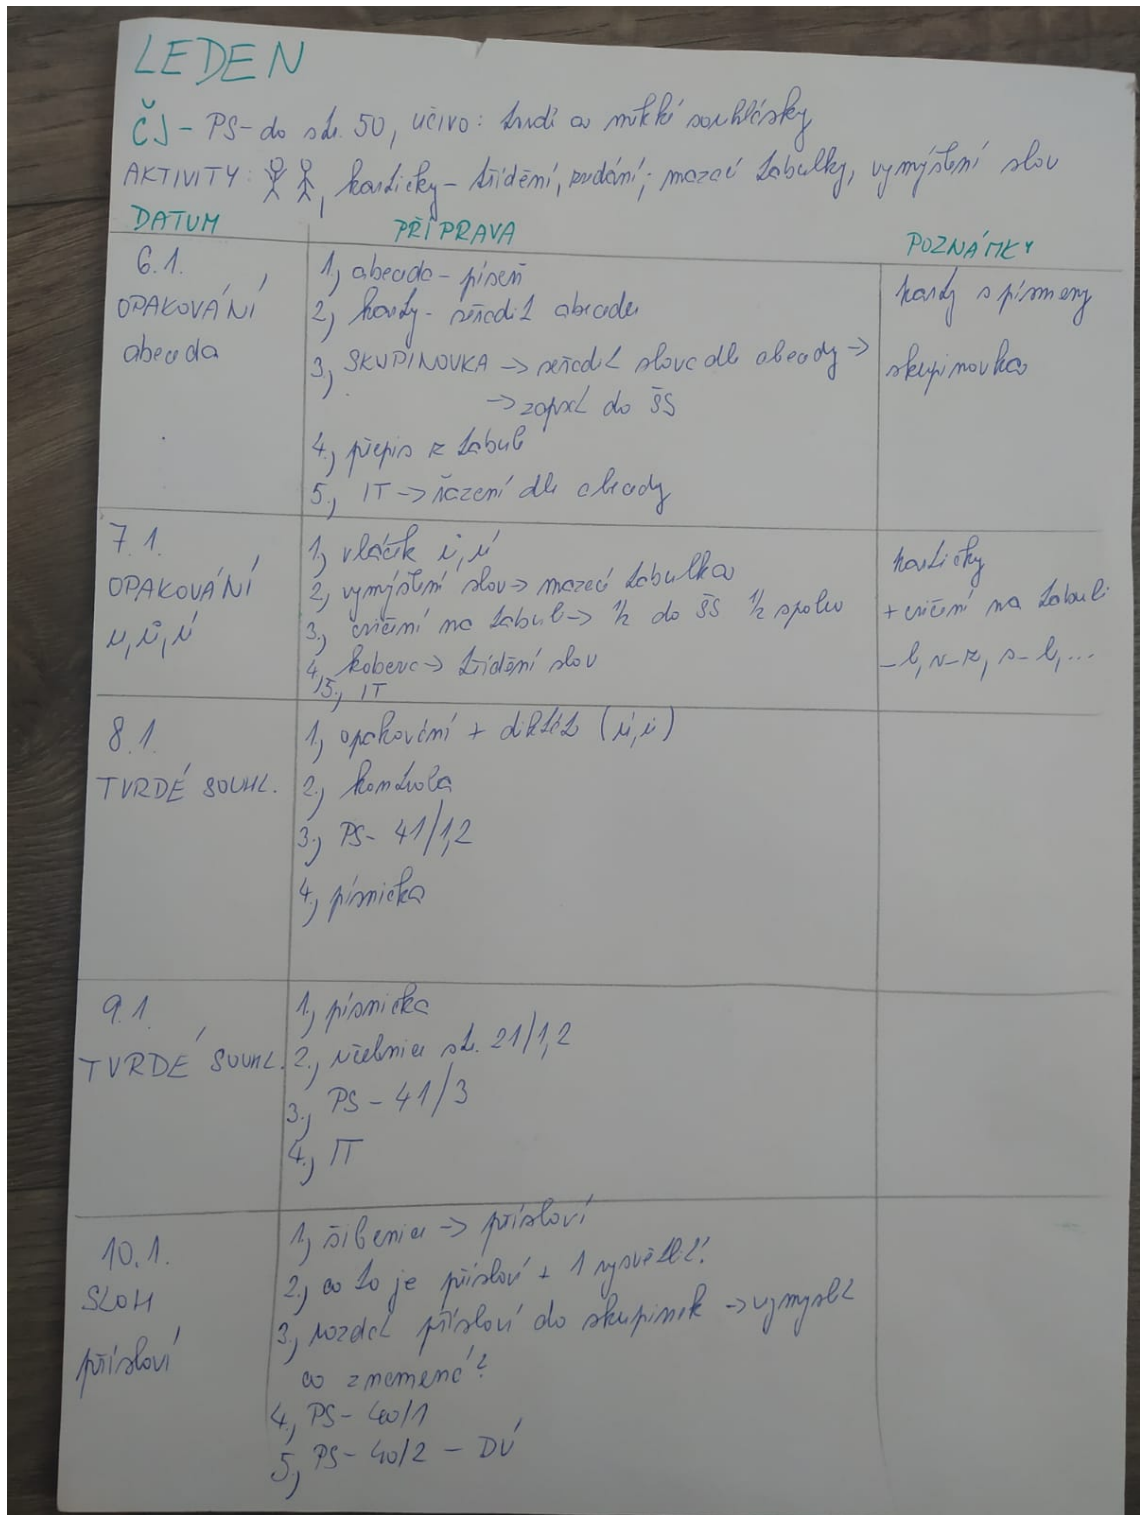 LEDEN
ČJ - PS - do str. 50, učivo: tvrdé a měkké souhlásky
AKTIVITY: , kartičky - třídění, zvdání; mazací tabulky, vymýšlení slov
DATUM PŘÍPRAVA POZNÁMKY
6.1.
OPAKOVÁNÍ
abeceda
1, abeceda - píseň
2, karty - seřadit abecedu
3, SKUPINOVKA -> seřadit slova dle abecedy ->
-> zapsat do ŠS
4, přepis z tabule
5, IT -> řazení dle abecedy
karty s písmeny
skupinovka
7.1.
OPAKOVÁNÍ
u, ů, ú
1, vláček ů, ú
2, vymýšlení slov -> mazací tabulka
3, cvičení na tabuli -> 1/2 do ŠS 1/2 spolu
4, koberec -> třídění slov
5, IT
kartičky
+ cvičení na tabuli
8.1.
TVRDÉ SOUHL.
1, opakování + diktát (ú, ů)
2, kontrola
3, PS - 41/1,2
4, písnička
9.1.
TVRDÉ SOUHL.
1, písnička
2, učebnice str. 21/1,2
3, PS - 41/3
4, IT
10.1.
SLOH
přísloví
1, šibenice -> přísloví
2, co to je přísloví + 1 vysvětlit!
3, rozdat přísloví do skupinek -> vymyslet
co znamená?
4, PS - 40/1
5, PS - 40/2 - DÚ